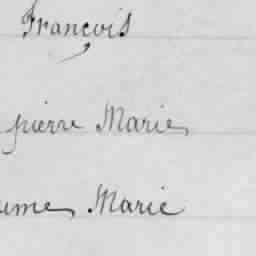 François
pierre Marie
ume Marie